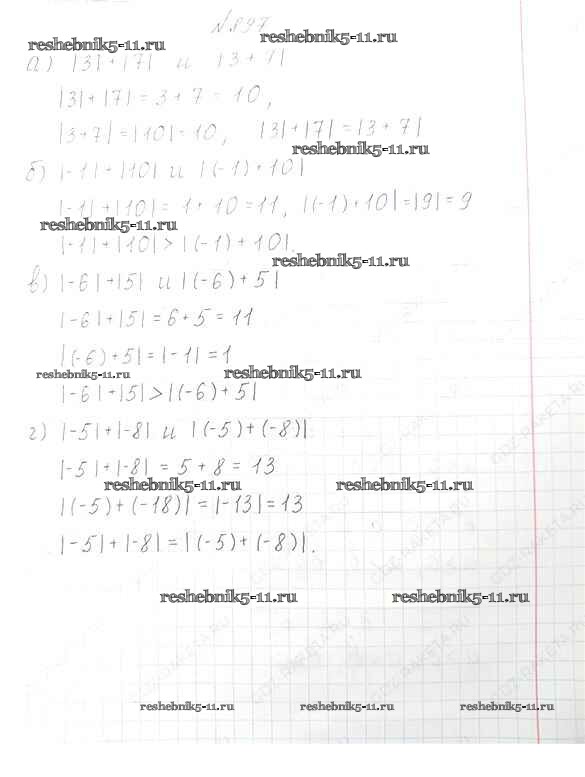 № 897
reshebnik5-11.ru reshebnik5-11.ru
а) |3| + |7| и |3 + 7|
|3| + |7| = 3 + 7 = 10,
|3+7| = |10| = 10, |3| + |7| = |3 + 7|
reshebnik5-11.ru
б) |-1| + |10| и |(-1) + 10|
|-1| + |10| = 1 + 10 = 11, |(-1) + 10| = |9| = 9
reshebnik5-11.ru
|-1| + |10| > |(-1) + 10|.
reshebnik5-11.ru
в) |-6| + |5| и |(-6) + 5|
|-6| + |5| = 6 + 5 = 11
|(-6) + 5| = |-1| = 1
reshebnik5-11.ru reshebnik5-11.ru
|-6| + |5| > |(-6) + 5|
г) |-5| + |-8| и |(-5) + (-8)|
|-5| + |-8| = 5 + 8 = 13
reshebnik5-11.ru reshebnik5-11.ru
|(-5) + (-18)| = |-13| = 13
|-5| + |-8| = |(-5) + (-8)|.
reshebnik5-11.ru reshebnik5-11.ru
GDZ-RAKETA.RU
reshebnik5-11.ru reshebnik5-11.ru reshebnik5-11.ru